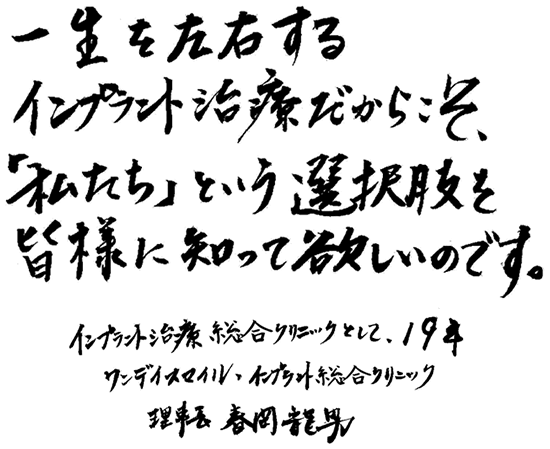 一生を左右する
インプラント治療だからこそ、
「私たち」という選択肢を
皆様に知って欲しいのです。
インプラント治療総合クリニックとして、19年
ワンデイスマイル・インプラント総合クリニック
理事長 春岡龍男